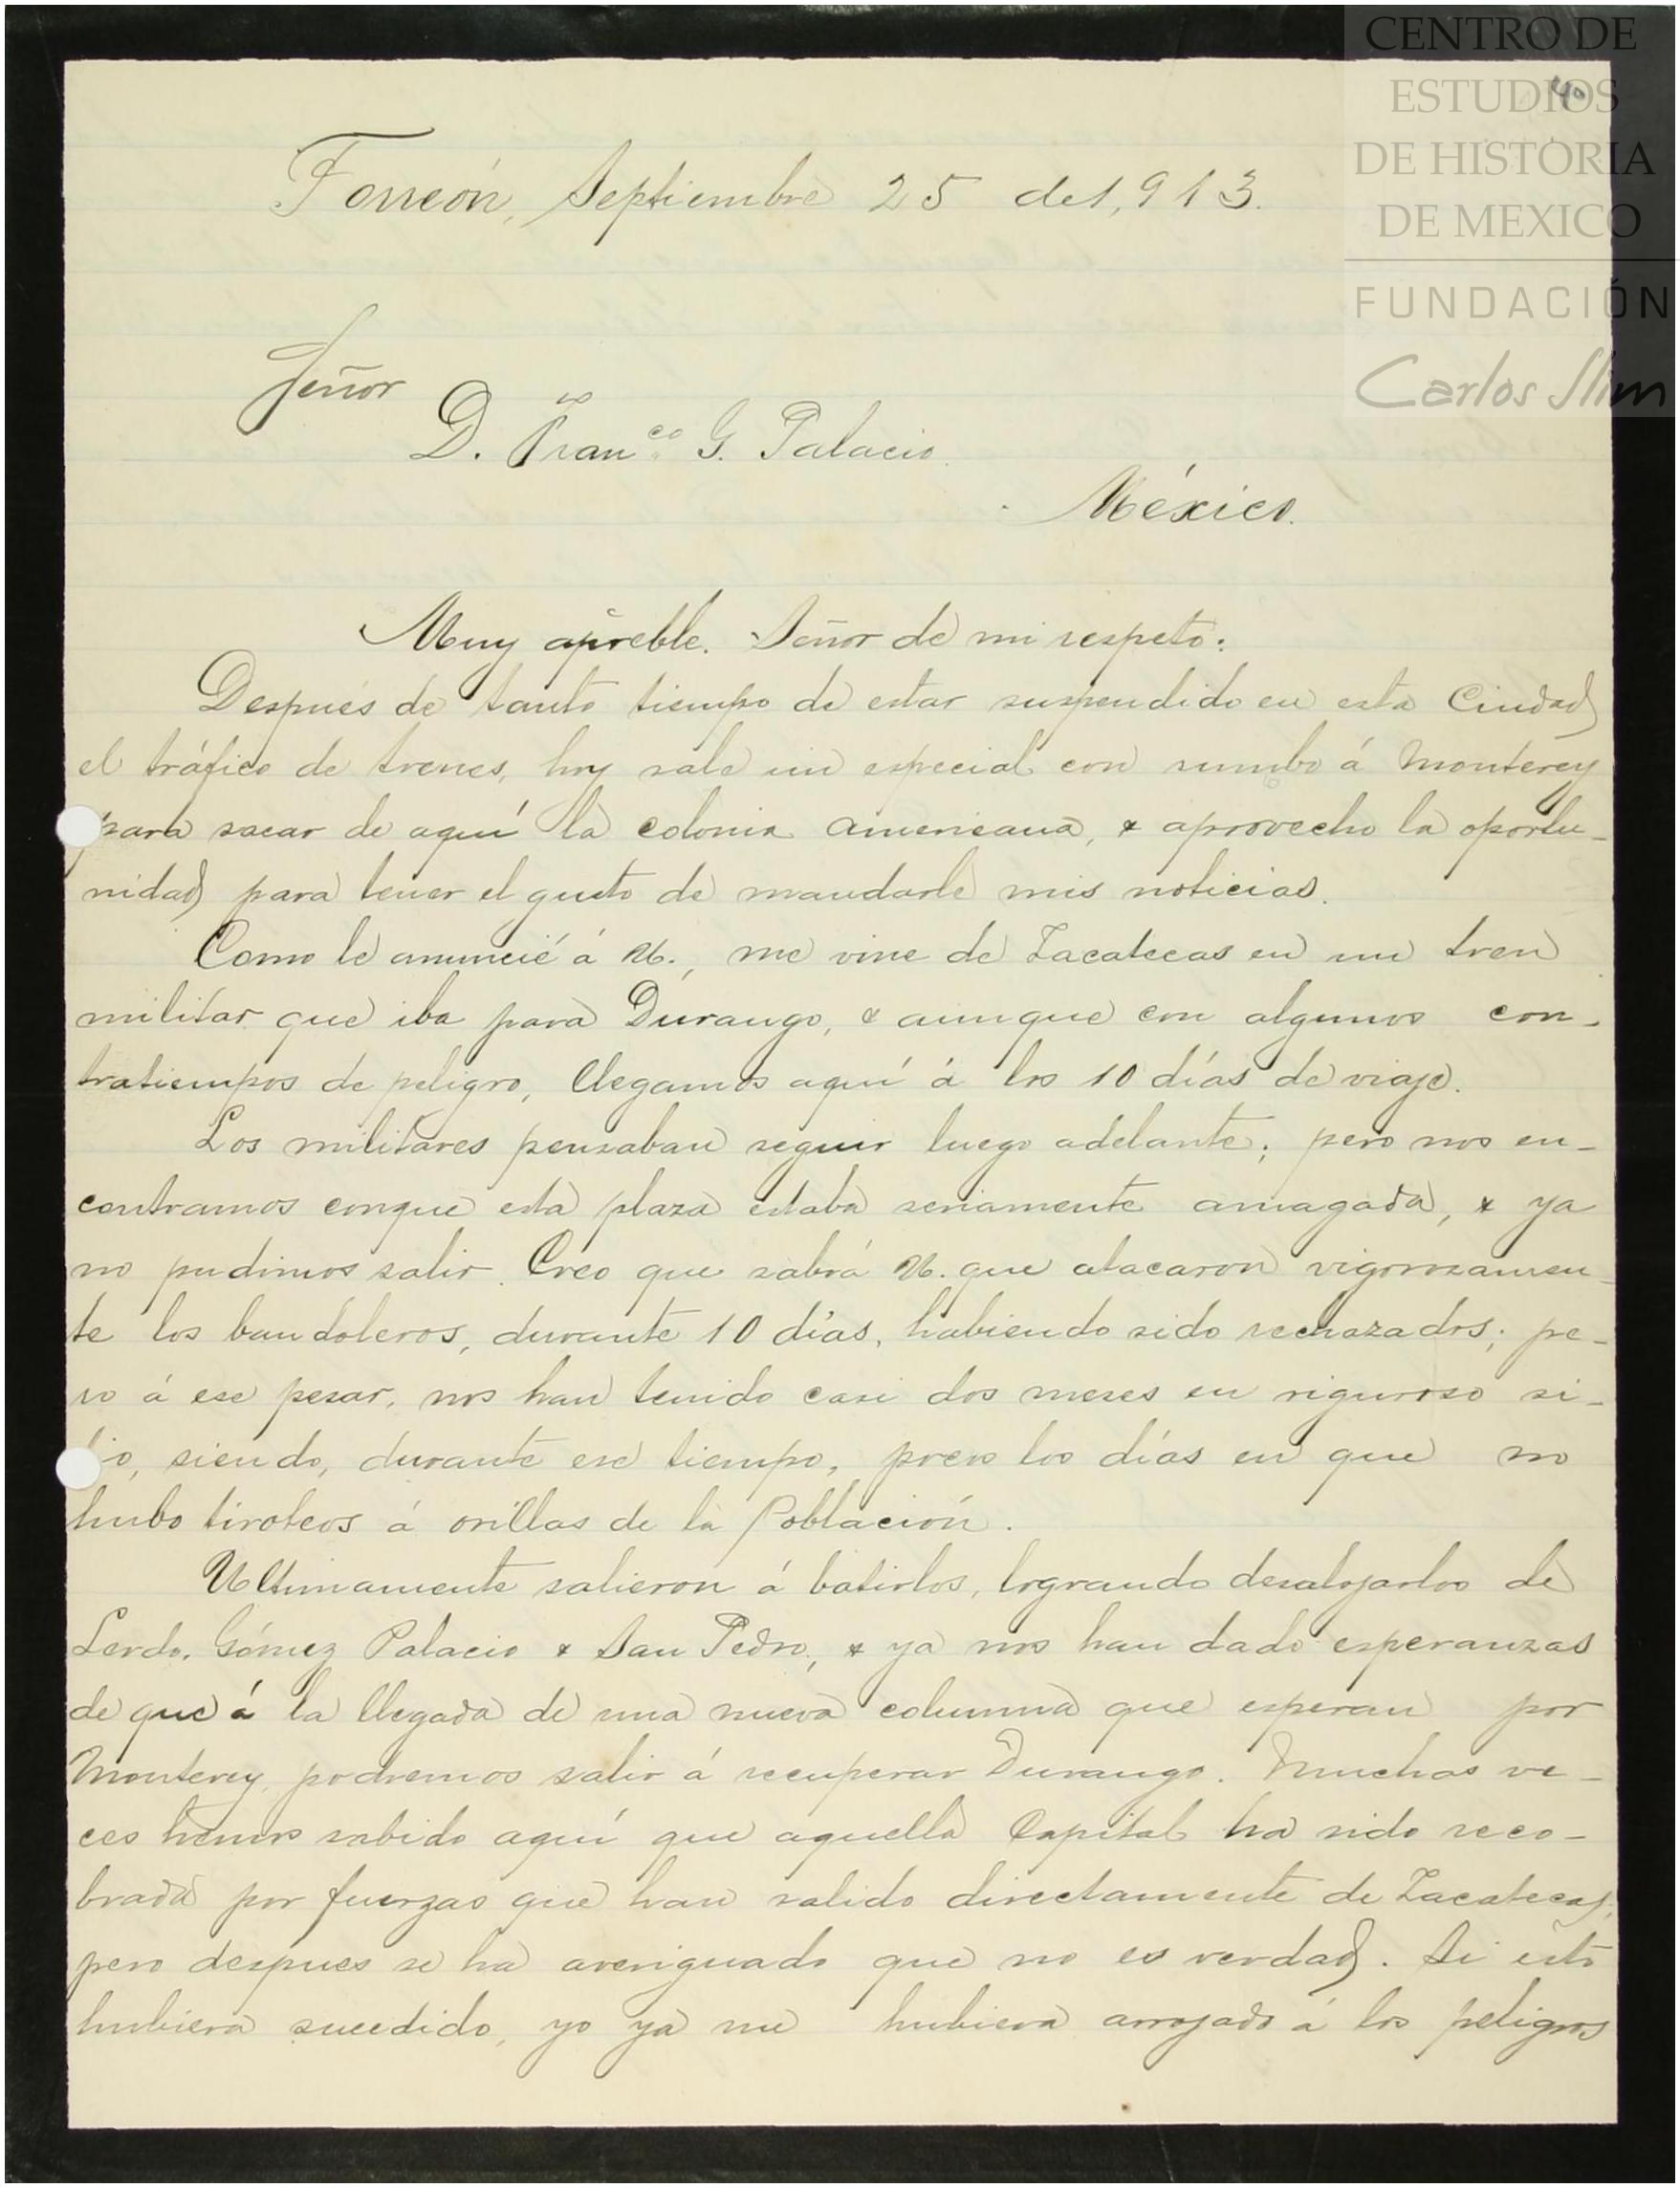 CENTRO DE
ESTUDIOS
DE HISTORIA
DE MEXICO
FUNDACIÓN
Carlos Slim
40
Torreón, Septiembre 25 de 1,913.
Señor
D. Fran.co G. Palacio.
México.
Muy apreble. Señor de mi respeto:
Después de tanto tiempo de estar suspendido en esta Ciudad
el tráfico de trenes, hoy sale un especial con rumbo á Monterey
para sacar de aquí la colonia americana, & aprovecho la oportu-
nidad para tener el gusto de mandarle mis noticias.
Como le anuncié á U., me vine de Zacatecas en un tren
militar que iba para Durango, & aunque con algunos con-
tratiempos de peligro, llegamos aquí á los 10 días de viaje.
Los militares pensaban seguir luego adelante; pero nos en-
contramos conque esta plaza estaba seriamente amagada, & ya
no pudimos salir. Creo que sabrá U. que atacaron vigorosamen-
te los bandoleros, durante 10 días, habiendo sido rechazados; pe-
ro á ese pesar, nos han tenido casi dos meses en riguroso si-
tio, siendo, durante ese tiempo, pocos los días en que no
hubo tiroteos á orillas de la Población.
Ultimamente salieron á batirlos, logrando desalojarlos de
Lerdo, Gómez Palacio & San Pedro, & ya nos han dado esperanzas
de que á la llegada de una nueva columna que esperan por
Monterey, podremos salir á recuperar Durango. Muchas ve-
ces hemos sabido aquí que aquella Capital ha sido reco-
brada por fuerzas que han salido directamente de Zacatecas,
pero despues se ha averiguado que no es verdad. Si esto
hubiera sucedido, yo ya me hubiera arrojado á los peligros